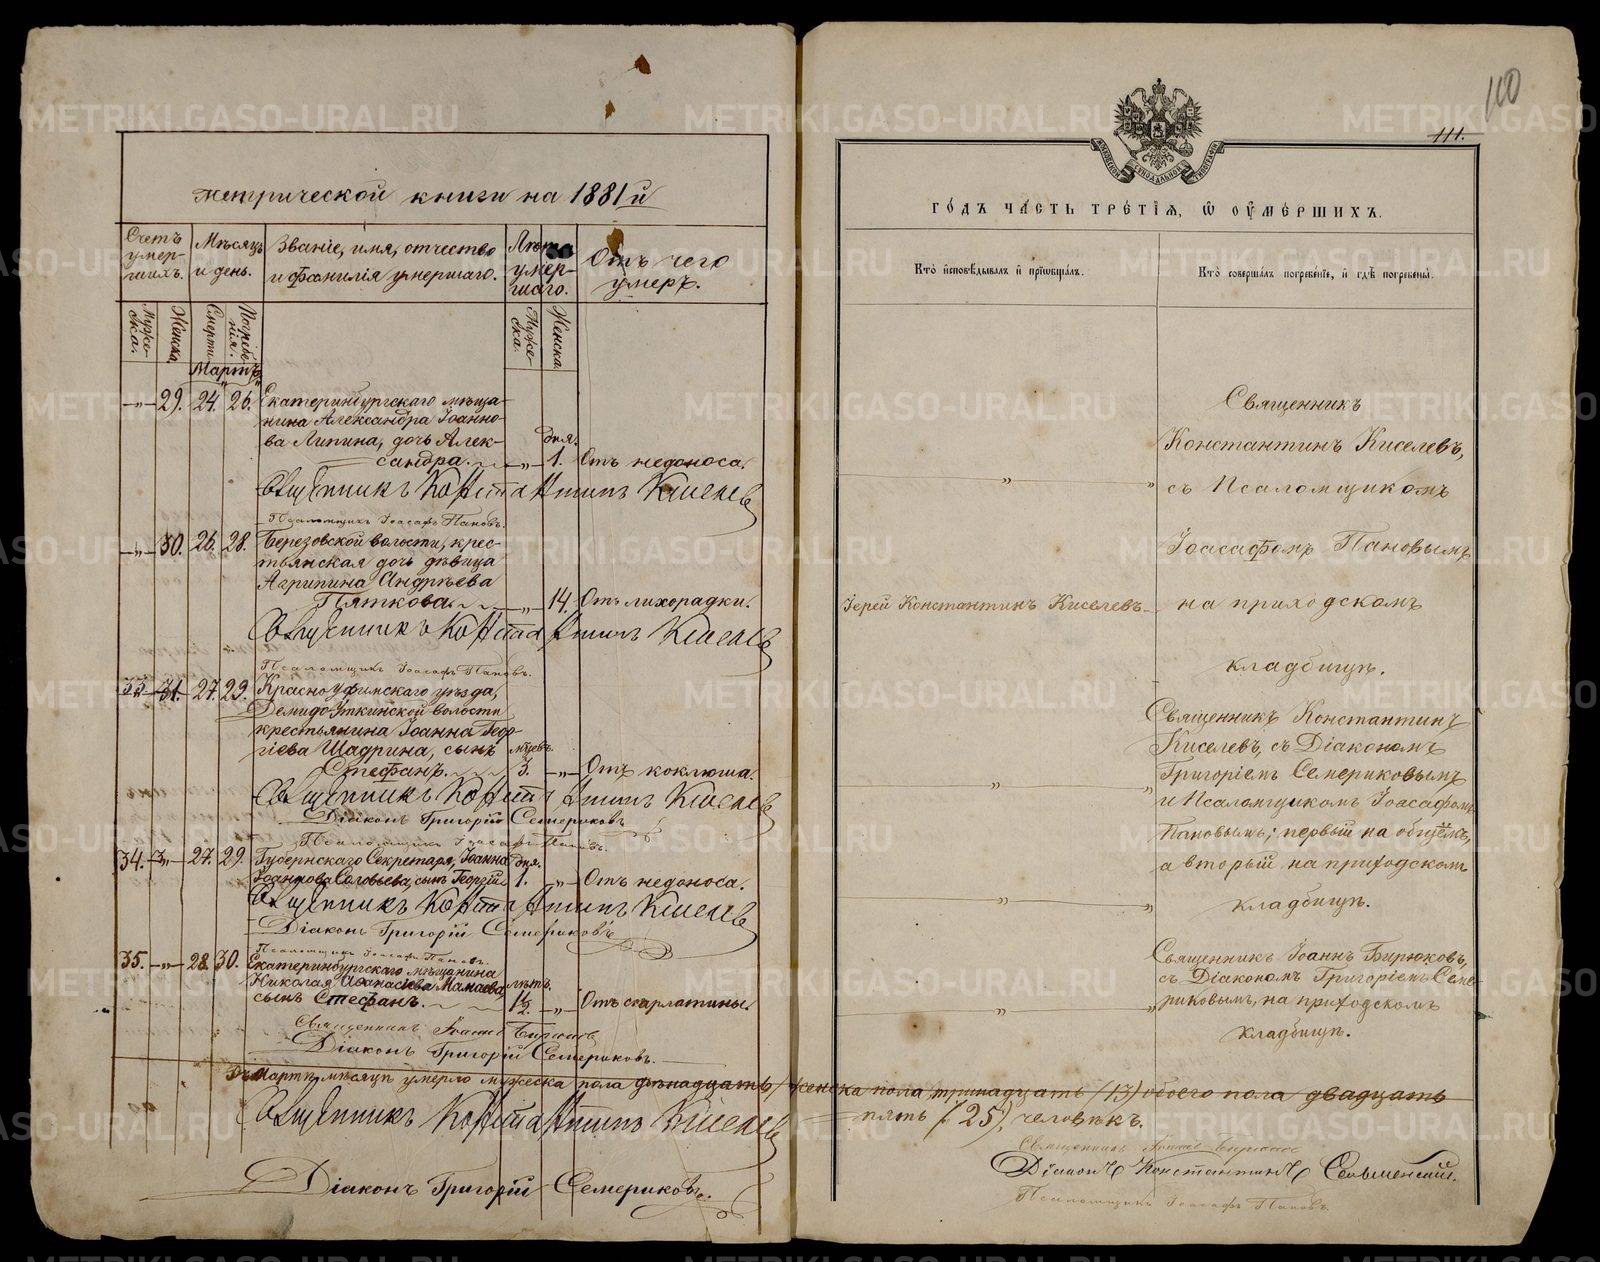 110
111.
метрической книги на 1881й
Счетъ умер-шихъ.
Мѣсяцъ и день.
Званіе, имя, отчество и фамилія умершаго.
Лѣта умер-шаго.
Отъ чего умеръ.
Муже-ска.
Женска
Смерти
Погребе-нія.
Муже-ска.
Женска.
Мартъ
— „ — 29. 24. 26. Екатеринбургскаго мѣща-
нина Александра Іоанно-
ва Липина, дочь Алек- дня.
сандра. — „ — 1. Отъ недоноса.
Священникъ Константинъ Киселевъ
Псаломщикъ Іоасафъ Пановъ.
— „ — 30. 26. 28. Березовской волости, крес-
тьянская дочь дѣвица
Агрипина Андрѣева
Пяткова. — „ — 14. Отъ лихорадки.
Священникъ Константинъ Киселевъ
Псаломщикъ Іоасафъ Пановъ.
33 31 27. 29. Красноуфимскаго уѣзда,
Демидо-Уткинской волости
крестьянина Іоанна Геор-
гіева Шадрина, сынъ мѣсев.
Стефанъ. 3. — „ — Отъ коклюша.
Священникъ Константинъ Киселевъ
Діаконъ Григорій Семериковъ
Псаломщикъ Іоасафъ Пановъ.
34. — „ — 27. 29. Губернскаго Секретаря, Іоанна дня.
Іоаннова Соловьева, сынъ Георгій 1. — „ — Отъ недоноса.
Священникъ Константинъ Киселевъ
Діаконъ Григорій Семериковъ
Псаломщикъ Іоасафъ Пановъ.
35. — „ — 28. 30. Екатеринбургскаго мѣщанина
Николая Аѳанасіева Манаева, лѣтъ.
сынъ Стефанъ. 1½. — „ — Отъ скарлатины.
Священникъ Іоаннъ Бирюковъ
Діаконъ Григорій Семериковъ.
Въ Мартѣ мѣсяцѣ умерло мужеска пола двѣнадцать, женска пола тринадцать (13) обоего пола двадцать
пять (25), человѣкъ.
Священникъ Константинъ Киселевъ
Діаконъ Григорій Семериковъ.
ГО́ДЪ ЧА́СТЬ ТРЕ́ТІЯ, Ѿ ОУ҆МЕ́РШИХЪ.
Кто̀ и҆сповѣ́дывалъ и҆ прїѡбща́лъ.
Кто̀ соверша́лъ погребе́нїе, и҆ гдѣ̀ погребены̀.
Священникъ
Константинъ Киселевъ,
съ Псаломщикомъ
Іоасафомъ Пановымъ
Іерей Константинъ Киселевъ на приходскомъ
кладбищѣ.
Священникъ Константинъ
Киселевъ, съ Діакономъ
Григоріемъ Семериковымъ
и Псаломщикомъ Іоасафомъ
Пановымъ; первый на общемъ,
а вторый на приходскомъ
кладбищѣ.
Священникъ Іоаннъ Бирюковъ,
съ Діакономъ Григоріемъ Семе-
риковымъ, на приходскомъ
кладбищѣ.
Священникъ Іоаннъ Бирюковъ
Діаконъ Константинъ
Псаломщикъ Іоасафъ Пановъ.
METRIKI.GASO-URAL.RU